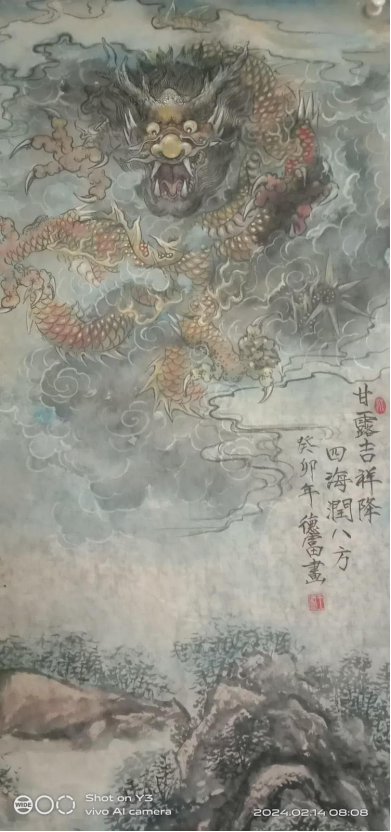 甘露吉祥降
四海潤八方
癸卯年 德富畫
WIDE
Shot on Y3
vivo AI camera
2024.02.14 08:08